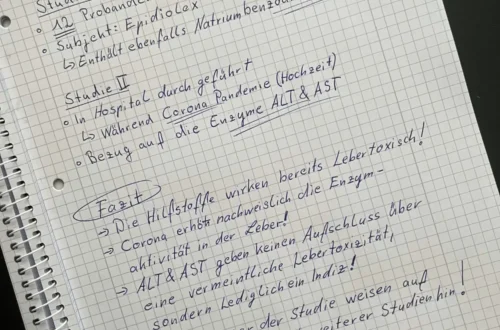 Studie
• 12 Probanden
• Subjcht: Epidiolax
↳ Enthält ebenfalls
Studie II
• In Hospital durchgeführt
↳ Während Corona Pandemie (Hochzeit)
• Bezug auf die Enzyme ALT & AST
Fazit
→ Die Hilfstoffe wirken bereits Lebertoxisch!
→ Corona erhöht nachweislich die Enzym-
aktivität in der Leber!
→ ALT & AST geben keinen Aufschluss über
eine vermeintliche Lebertoxizität,
sondern Lediglich ein Indiz!
der Studie weisen auf
weiterer Studien hin!